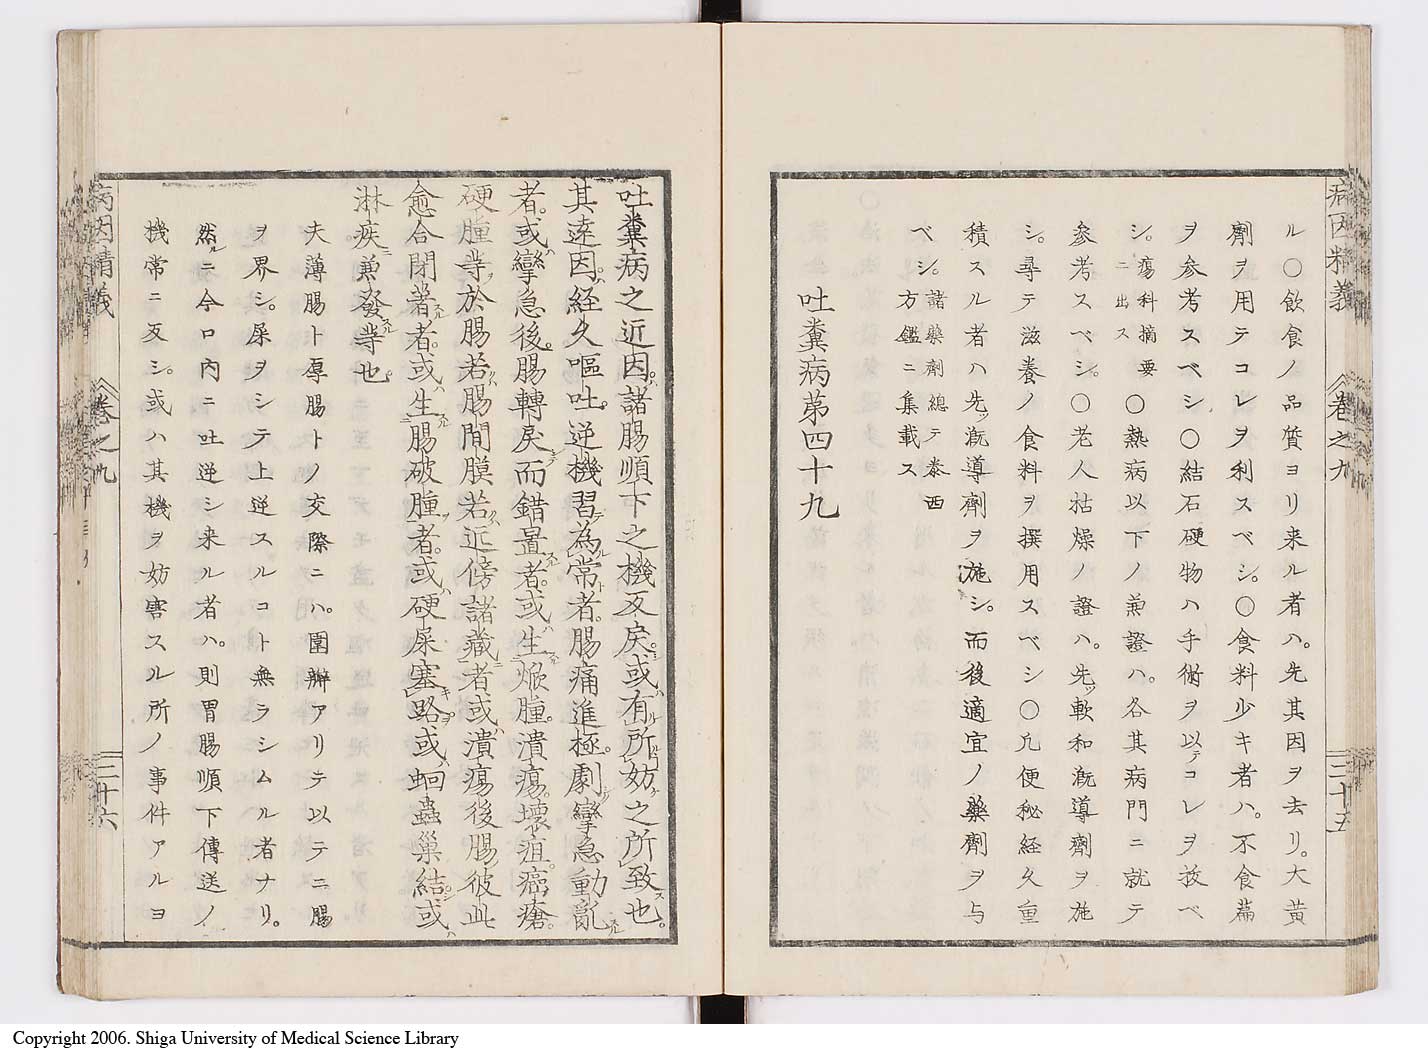 病因精義
卷之九
三十五
ル〇飲食ノ品質ヨリ来ル者ハ。先其因ヲ去リ。大黄
劑ヲ用テコレヲ利スベシ。〇食料少キ者ハ。不食篇
ヲ参考スベシ〇結石硬物ハ手術ヲ以テコレヲ放ベ
シ。瘍科摘要ニ出ス〇熱病以下ノ兼證ハ。各其病門ニ就テ
参考スベシ。〇老人枯燥ノ證ハ。先ッ軟和漑導劑ヲ施
シ。尋テ滋養ノ食料ヲ撰用スベシ〇凡便秘経久重
積スル者ハ先ッ漑導劑ヲ施シ。而後適宜ノ藥劑ヲ与
ベシ。諸藥劑總テ泰西方鑑ニ集載ス
吐糞病第四十九
吐糞病之近因。諸腸順下之機反戾。或有所妨之所致也。
其遠因。経久嘔吐。逆機習為常者。腸痛進極。劇攣急動亂
者。或攣急後。腸轉戾而錯畳者。或生焮腫。潰瘍。壊疽。癌瘡。
硬腫等於腸若腸間膜若近傍諸藏者或潰瘍後腸彼此
愈合閉著者。或生腸破腫者。或硬屎塞路或蛔蟲巢結或
淋疾兼發等也
夫薄腸ト厚腸トノ交際ニハ。圍瓣アリテ以テニ腸
ヲ界シ。屎ヲシテ上逆スルコト無ラシムル者ナリ。
然ルニ今口内ニ吐逆シ来ル者ハ。則胃腸順下傳送ノ
機常ニ反シ。或ハ其機ヲ妨害スル所ノ事件アルヨ
病因精義
卷之九
三十六
Copyright 2006. Shiga University of Medical Science Library